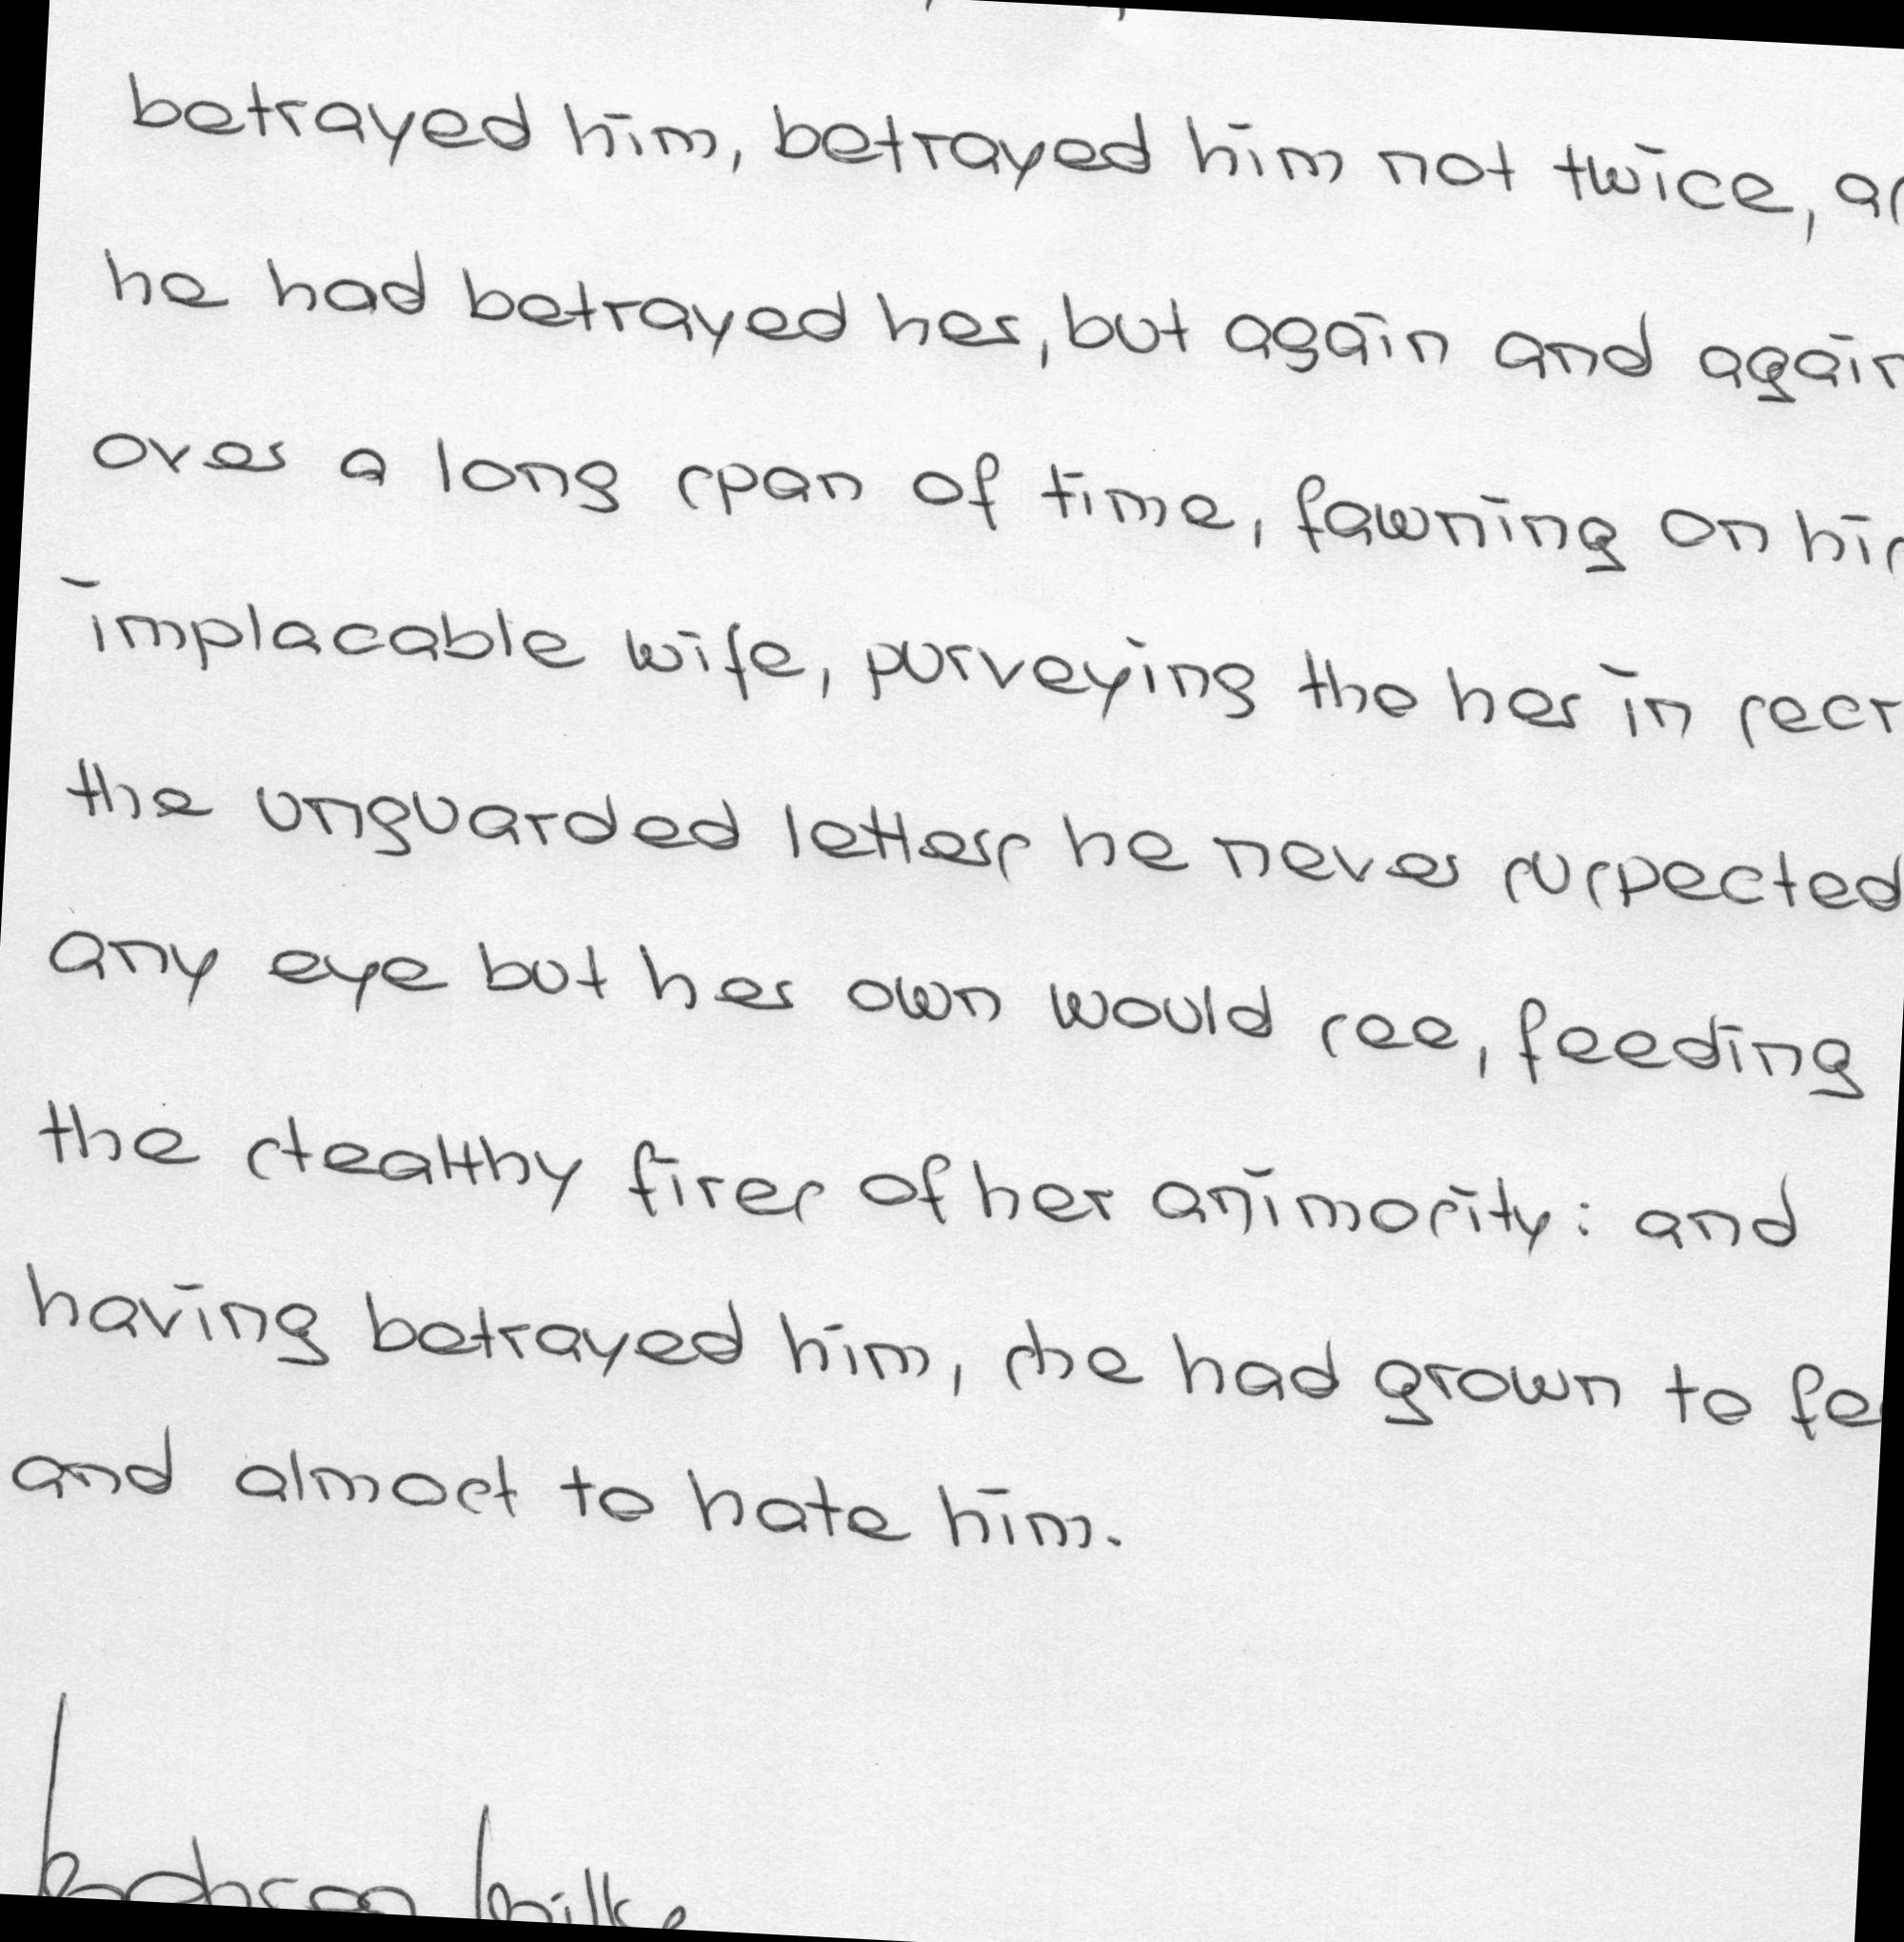 betrayed him, betrayed him not twice, as
he had betrayed her, but again and again
over a long span of time, fawning on his
implacable wife, purveying tho her in secr
the unguarded letters he never suspected
any eye but her own would see, feeding
the stealthy fires of her animosity: and
having betrayed him, she had grown to fe
and almost to hate him.